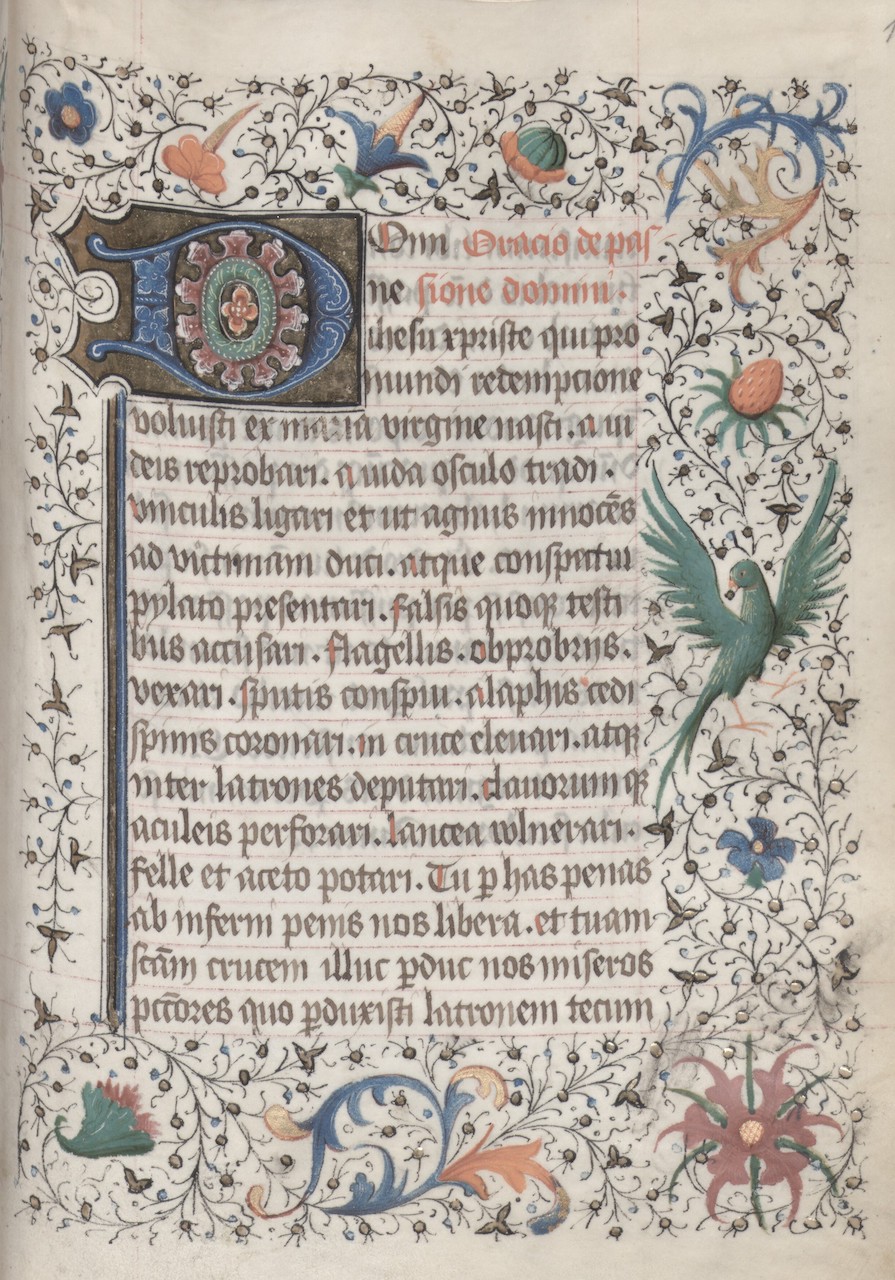 Domi Oracio de pas
ne sione domini.
ihesu xpriste qui pro
mundi redempcione
voluisti ex maria virgine nasci. a iu
deis reprobari. a iuda osculo tradi.
vinculis ligari et ut agnus innocēs
ad victimam duci. atque conspectui
pylato presentari. falsis quoqꝫ testi
bus accusari. flagellis. obprobriis.
vexari. sputis conspui. alaphis cedi
spinis coronari. in cruce elevari. atqꝫ
inter latrones deputari. clavorumqꝫ
aculeis perforari. lancea wlnerari.
felle et aceto potari. Tu ꝑ has penas
ab inferni penis nos libera. et tuam
scām crucem illuc ꝑduc nos miseros
pctōres quo ꝑduxisti latronem tecum